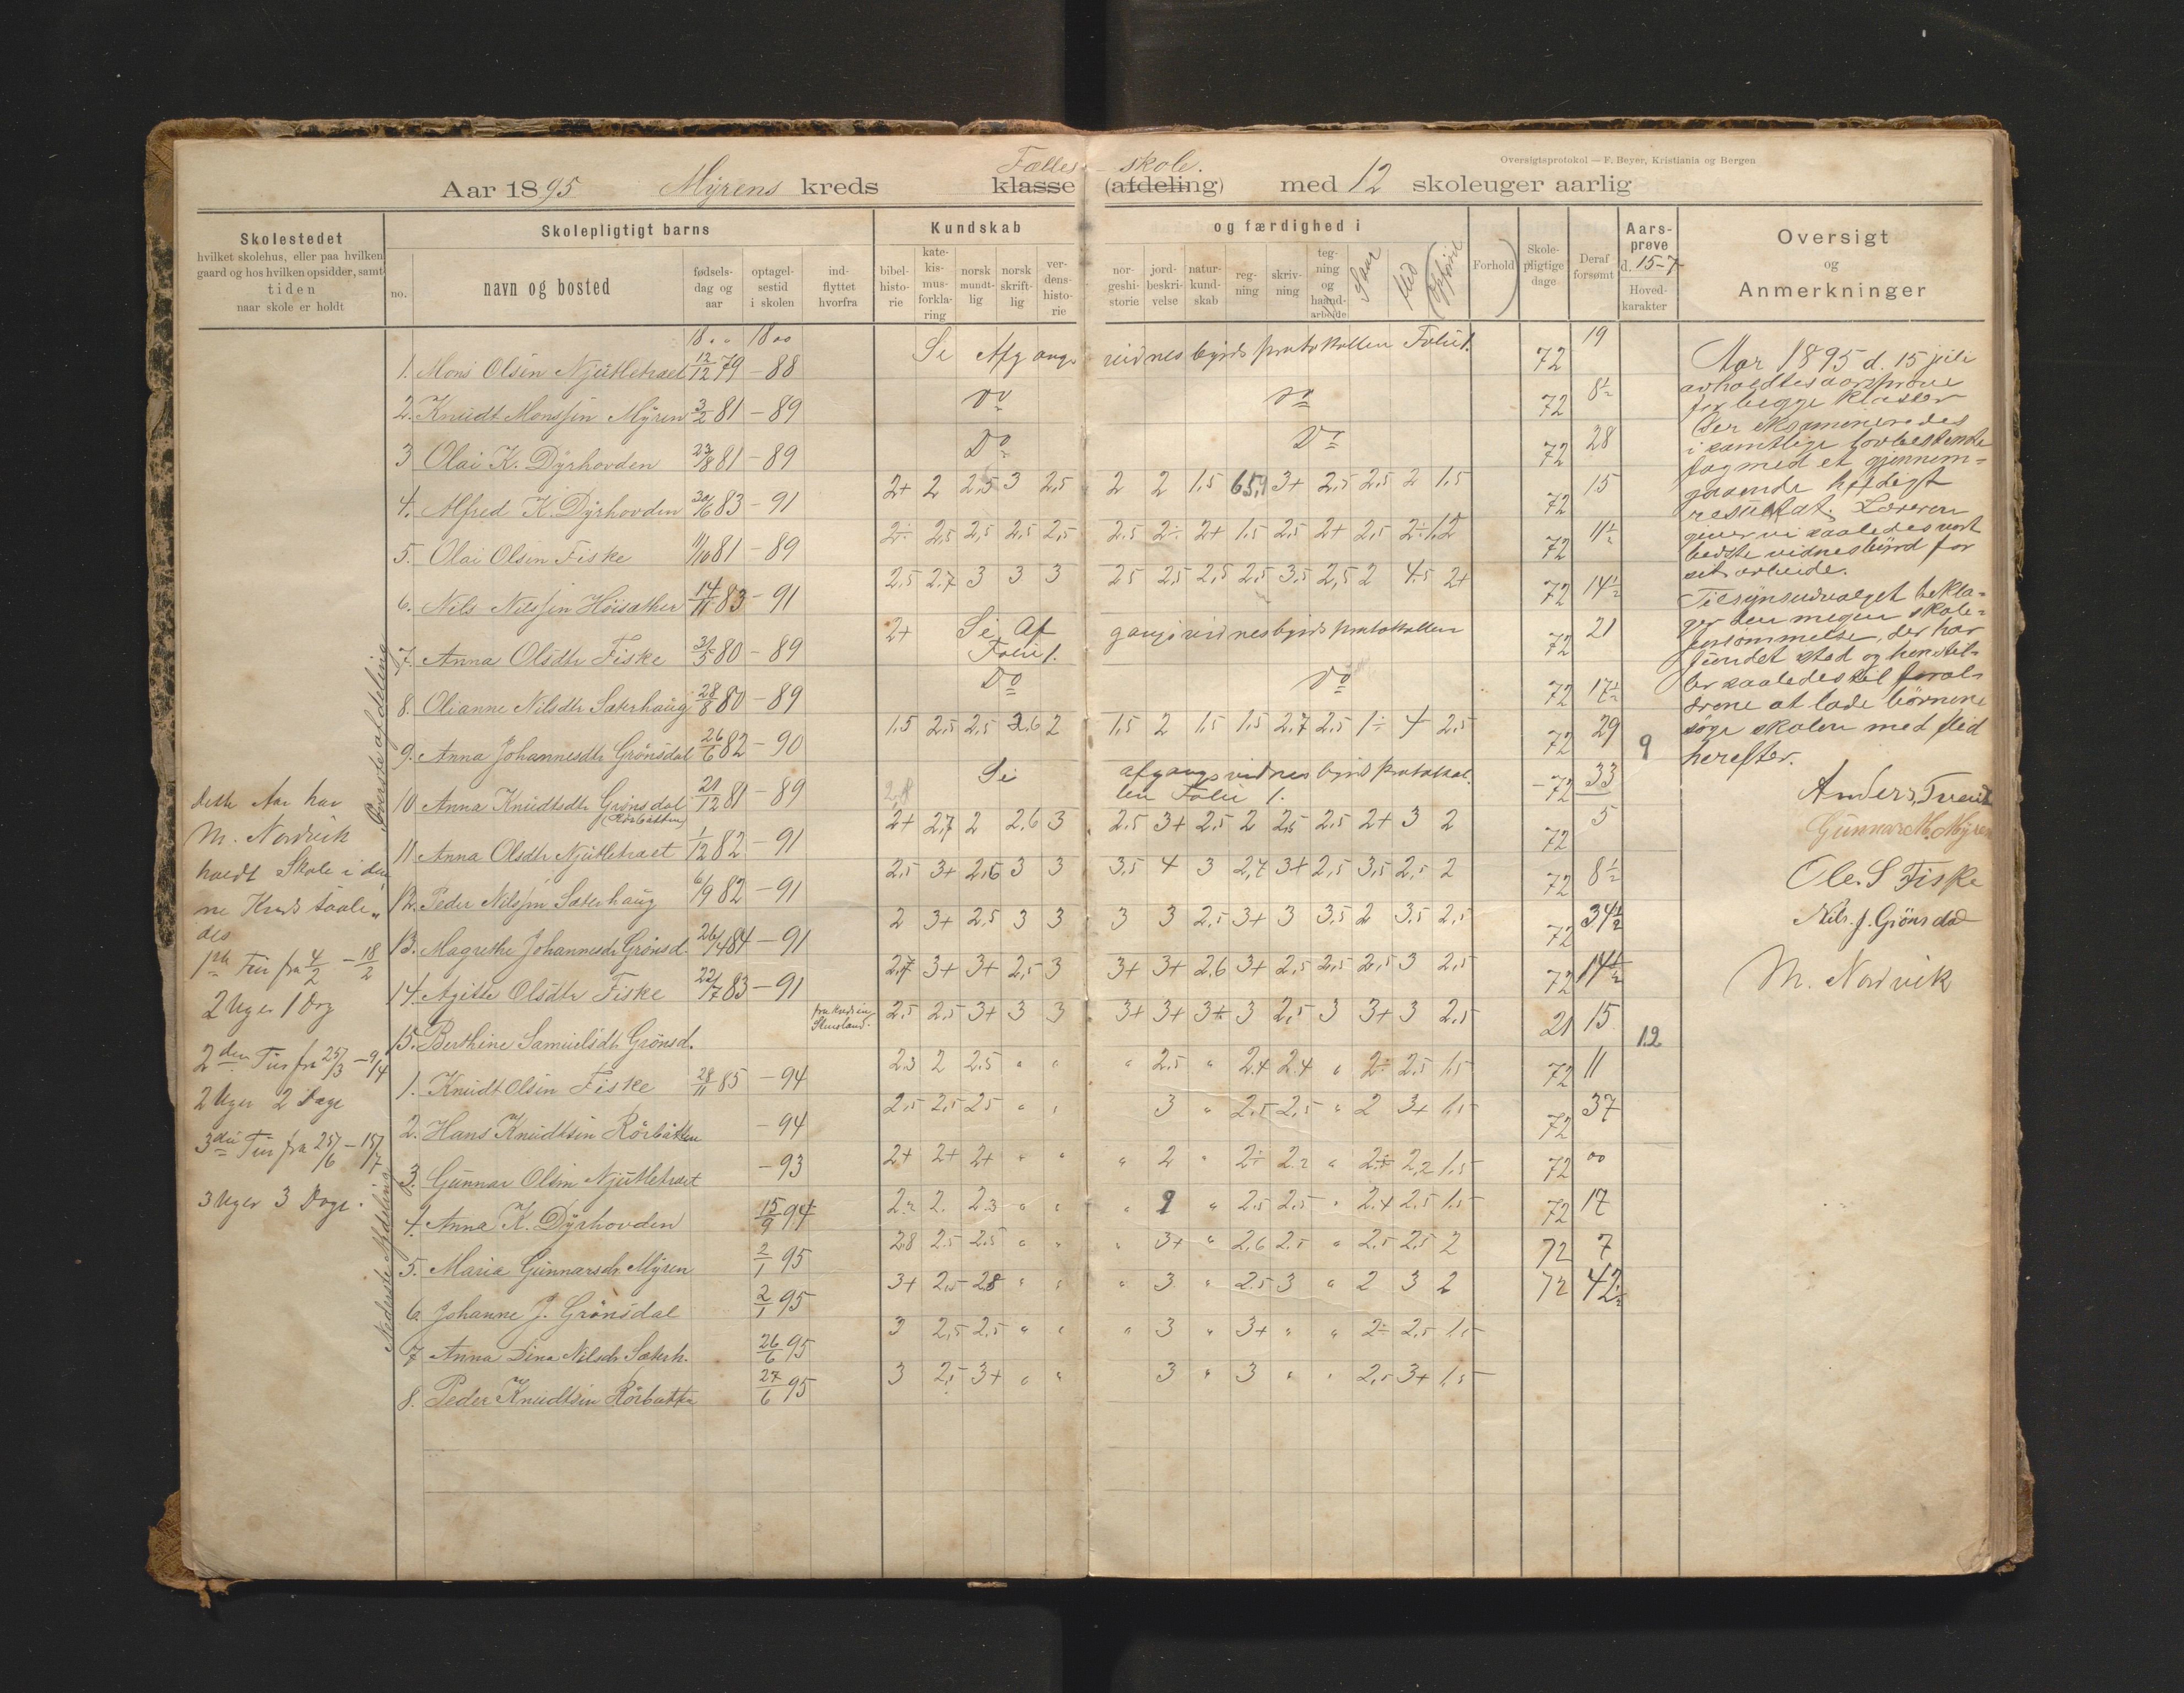 Oversigtsprotokol — F. Beyer, Kristiania og Bergen
Fælles skole.
Aar 1895 Myrens kreds klasse (afdeling) med 12 skoleuger aarlig
Skolestedet
hvilket skolehus, eller paa hvilken
gaard og hos hvilken opsidder, samt
tiden
naar skole er holdt
Skolepligtigt barns
no.
navn og bosted
fødsels-
dag og
aar
optagel-
sestid
i skolen
ind-
flyttet
hvorfra
Kundskab og færdighed i
bibel-
histo-
rie
kate-
kis-
mus-
forkla-
ring
norsk
mundt-
lig
norsk
skrift-
lig
ver-
dens-
histo-
rie
nor-
geshi-
storie
jord-
beskri-
velse
natur-
kund-
skab
reg-
ning
skriv-
ning
teg-
ning
og
haand-
arbeide
Sang
Flid
Opførsel
(Forhold)
Skole-
pligtige
dage
Deraf
forsømt
Aars-
prøve
d. 15-7
Hoved-
karakter
Oversigt
og
Anmerkninger
18 " " 18 00
1. Mons Olsen Njutletræet 12/12 79 - 88 Se Afgangsvidnesbyrdsprotokollen Folie 1. 72 19
2. Knudt Monssen Myren 3/2 81 - 89 Do Do 72 8½
3 Olai K. Dyrhovden 23/8 81 - 89 Do Do 72 28
4. Alfred K. Dyrhovden 30/6 83 - 91 2+ 2 2,5 3 2,5 2 2 1,5 3+ 2,5 2,5 2 1,5 72 15
5. Olai Olsen Fiske 11/10 81 - 89 2÷ 2,5 2,5 2,5 2,5 2,5 2÷ 2+ 1,5 2,5 2+ 2,5 2÷ 1,2 72 11½
6. Nils Nilssen Höisæther 14/11 83 - 91 2,5 2,7 3 3 3 2,5 2,5 2,5 2,5 3,5 2,5 2 4,5 2+ 72 14½
7. Anna Olsdtr Fiske 31/5 80 - 89 2+ Se Afgangsvidnesbyrdsprotokollen Folie 1. 72 21
8. Olianne Nilsdtr Sæterhaug 28/8 80 - 89 Do Do 72 17½
9. Anna Johannesdtr Grönsdal 26/6 82 - 90 1,5 2,5 2,5 2,6 2 1,5 2 1,5 1,5 2,7 2,5 1÷ 4 2,5 72 29 9
10 Anna Knudtsdtr Grönsdal 21/12 81 - 89 Se afgangsvidnesbyrdprotokol-
len Folie 1. 72 33
(Rörbotten)
11. Anna Olsdtr Njutletraet 1/12 82 - 91 2+ 2,7 2 2,6 3 2,5 3+ 2,5 2 2,5 2,5 2+ 3 2 72 5
12. Peder Nilssen Sæterhaug 6/9 82 - 91 2,5 3+ 2,6 3 3 3,5 4 3 2,7 3+ 2,5 3,5 2,5 2 72 8½
13. Magrethe Johannesdr Grönsd. 26/4 84 - 91 2 3+ 2,5 3 3 3 3 2,5 3+ 3 3,5 2 3,5 2,5 72 34½
14. Agitte Olsdtr Fiske 22/7 83 - 91 2,7 3+ 3+ 2,5 3 3+ 3+ 2,6 3+ 2,5 2,5 2,5 3 2,5 72 14½
15. Berthine Samuelsdtr Grönsd. 2,5 2,5 3+ 3 3 3+ 3+ 3+ 3 2,5 3 3+ 3 2,5 21 15 12
1. Knudt Olsen Fiske 28/11 85 - 94 2,3 2 2,5 " " " 2,5 " 2,4 2,4 " 2÷ 2,5 1,5 72 11
2. Hans Knudtsen Rörbotten - 94 2,5 2,5 2,5 " " 3 " 2,5 2,5 " 2 3+ 1,5 72 37
3. Gunnar Olsen Njutletræet - 93 2+ 2+ 2+ " " " 2 " 2÷ 2,2 " 2÷ 2,2 1,5 72 00
4. Anna K. Dyrhovden 15/9 94 2,2 2. 2,3 " " " 2 " 2,5 2,5 " 2,4 2,5 1,5 72 17
5. Maria Gunnarsdr Myren 2/1 95 2,8 2,5 2,5 " " " 3+ " 2,6 2,5 " 2,5 2,5 2 72 7
6. Johanne J. Grönsdal 2/1 95 3+ 2,5 2,8 " " " 3 " 2,5 3 " 2 3 2 72 42½
7 Anna Dina Nilsdr Sæterh. 26/6 95 3 2,5 2,5 " " " 3 " 3+ " " 2÷ 2,5 1,5
8. Peder Knudtsen Rörbotten 27/6 95 3 2,5 3+ " " 3 " 3 " " 2,5 3+ 1,5
Øverste afdeling
Nederste Afdeling
dette Aar har
M. Nordvik
holdt Skole i den-
ne Kreds saale-
des
1ste Tur fra 4/2 - 18/2
2 Uger 1 Dag
2den Tur fra 25/3 - 9/4
2 Uger 2 Dage
3die Tur fra 25/6 - 15/7
3 Uger 3 Dage.
Aar 1895 d. 15 juli
avholdtes aarsprøve
for begge klasser
Der eksamineredes
i samtlige lovbestemte
fag med et gjennem-
gaaende heldigt
resultat. Læreren
giver vi saaledes vort
bedste vidnesbyrd for
sit arbeide.
Tilsynsudvalget bekla-
ger den megen skole-
forsømmelse, der har
fundet sted og henstil-
ler saaledes til foræl-
drene at lade børnene
søge skolen med flid
herefter.
Anders Tveit
Gunnar M. Myren
Ole. S Fiske
Nils. J. Grönsdal
M. Nordvik